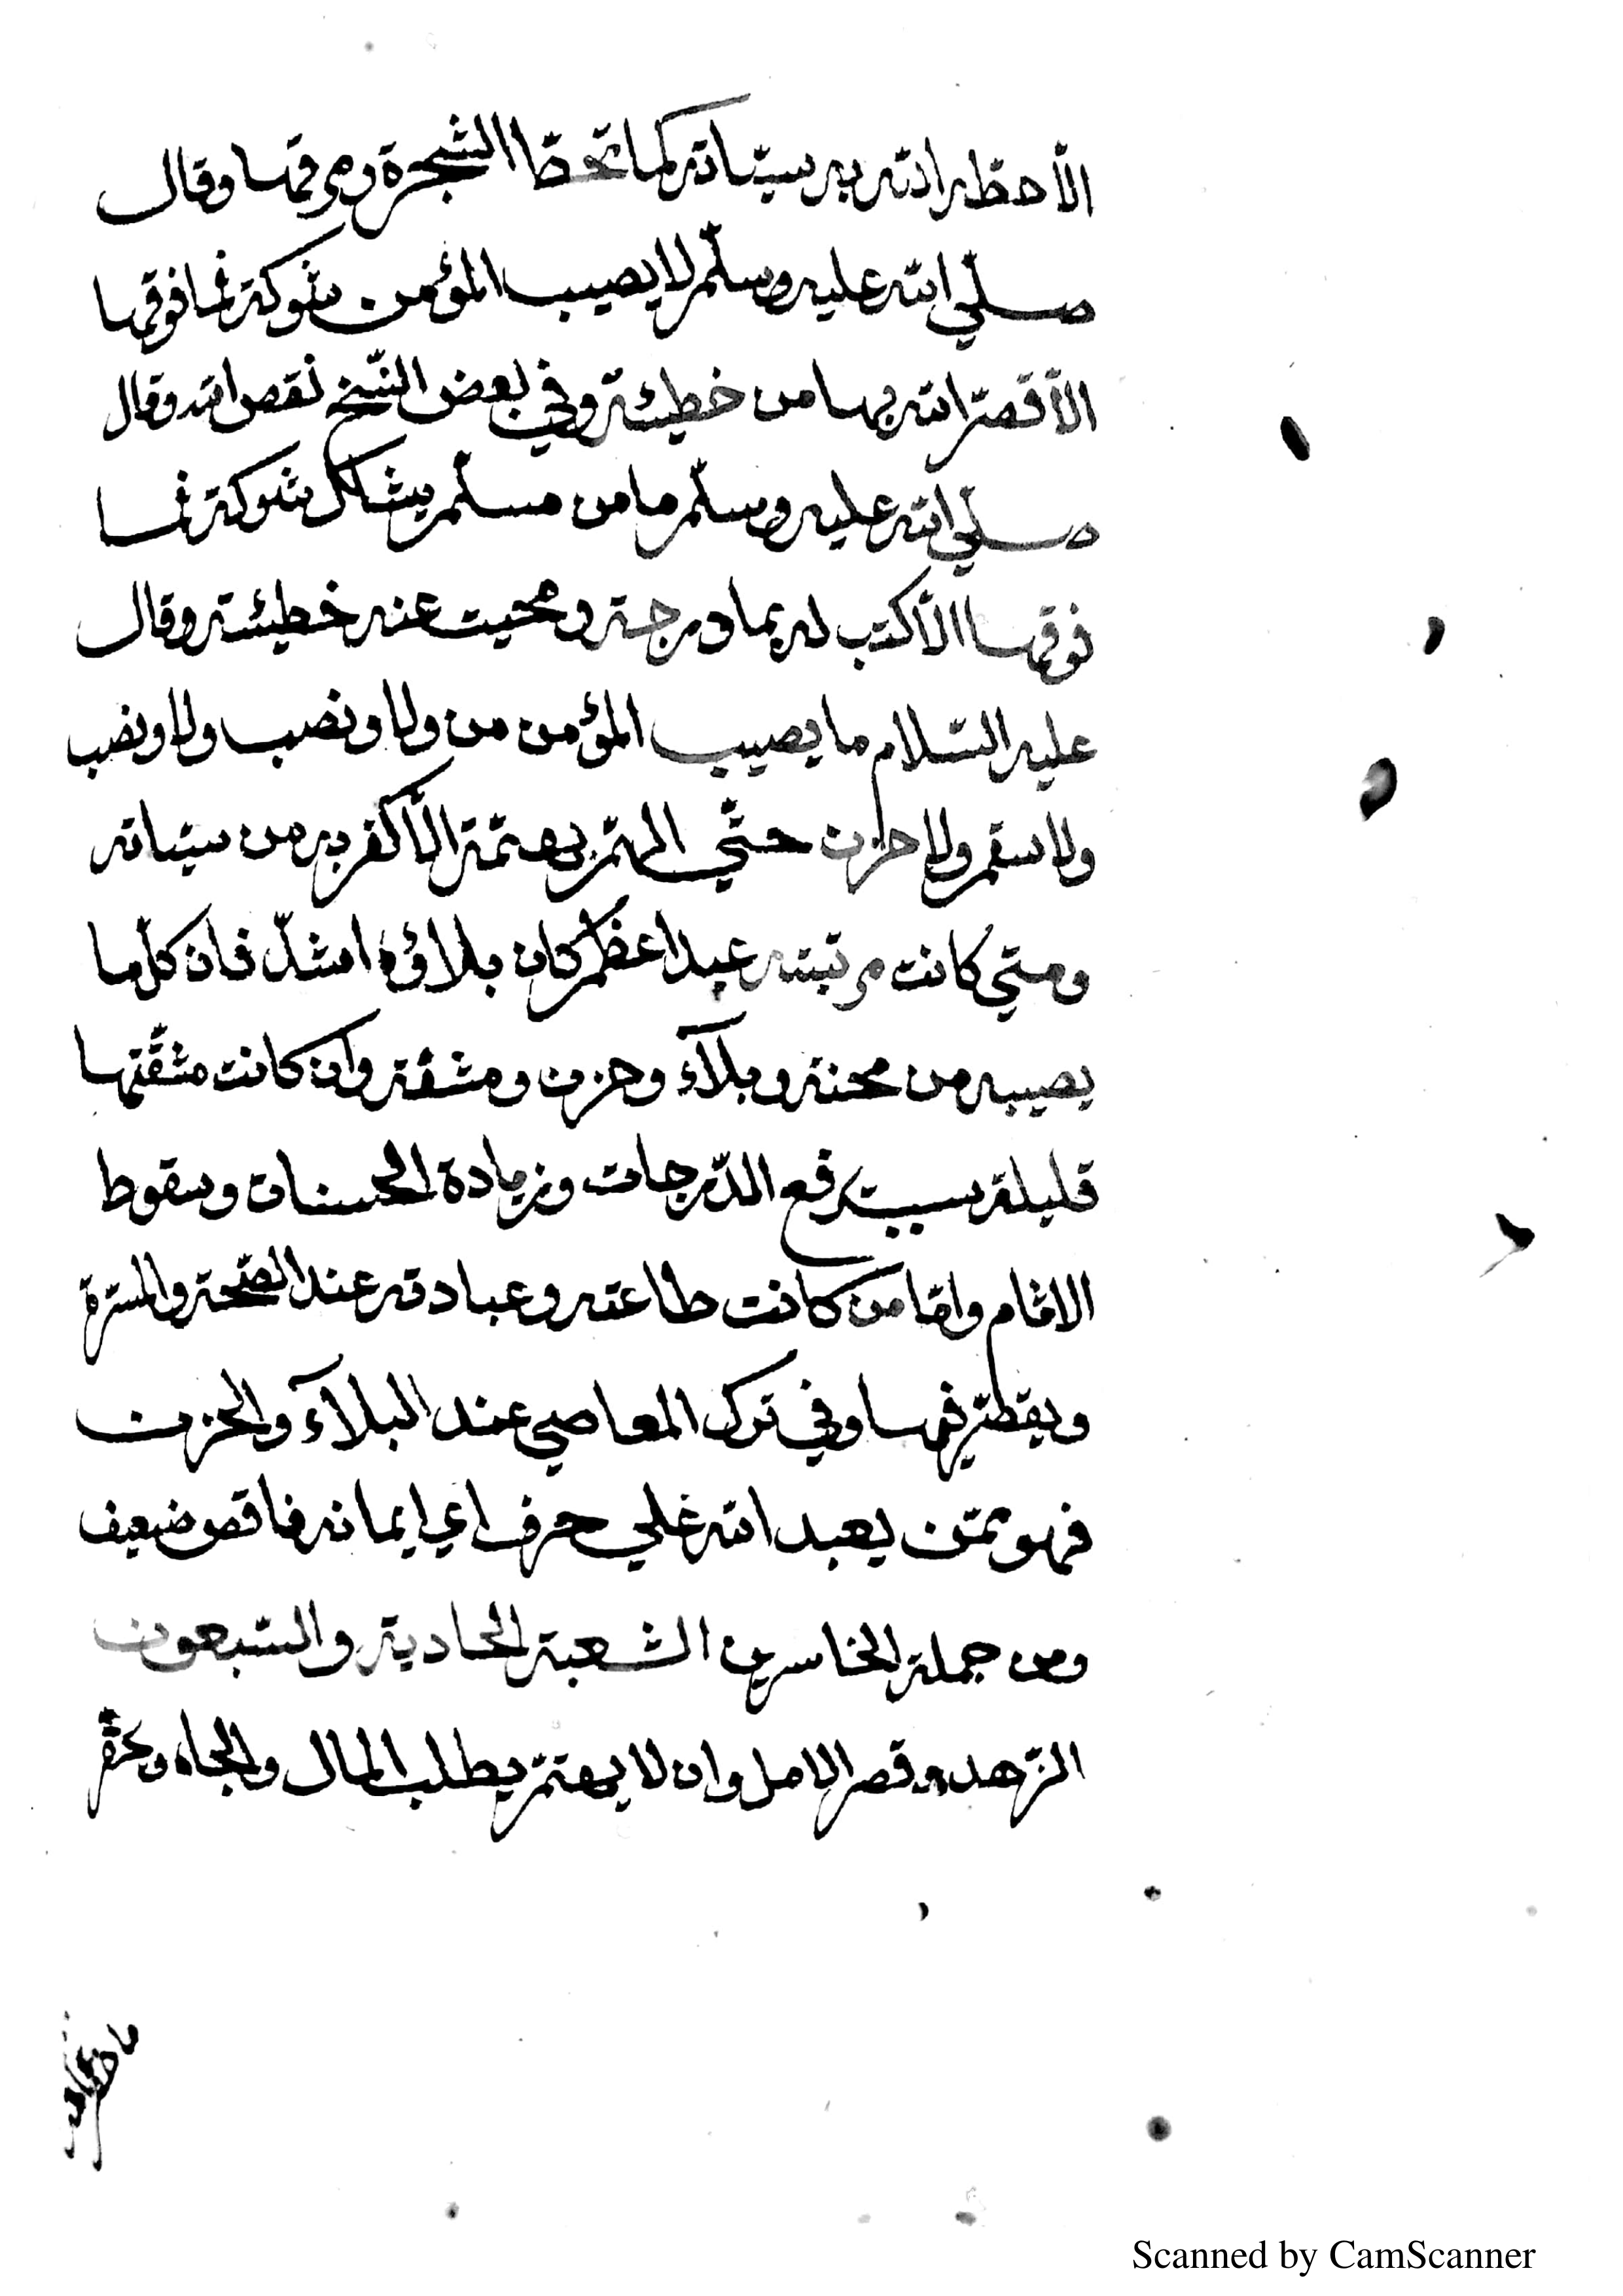 الّا حطّ الله به سيّئاته كما تحطّ الشجرة ورقها وقال
صلّي الله عليه وسلّم لا يصيب المؤمن شوكة فما فوقها
الّا قصّ الله بها من خطيئته وفي بعض النّسخ نقص الله وقال
صلّي الله عليه وسلّم ما من مسلم يشاك شوكة فما
فوقها الّا كتب له بها درجة ومحيت عنه خطيئته وقال
عليه السّلام ما يصيب المؤمن من ولا ونصب ولا ونصب
ولا سقم ولا حزن حتّي الهمّ يهمّه الّا كفر به من سيّئاته
ومتي كانت مرتبته عبدا عظم كان بلاؤه اشدّ فان كلّما
يصيبه من محنة وبلآء وحزن ومشقّة وان كانت مشقّتها
قليلة يسبب رفع الدّرجات وزيادة الحسنات وسقوط
الاثام وامّا من كانت طاعته وعبادته عند الصّحة والمسرّة
ويقطع فيها وفي ترك المعاصي عند البلآء والحزن
فهو ممّن يعبد الله علي حرف اي ايمانه ناقص ضعيف
ومن جملة الخاسرين الشعبة الحادية والسّبعون
الزّهد وقصر الامل وان لا يهتمّ بطلب المال والجاه ويحقّر
Scanned by CamScanner